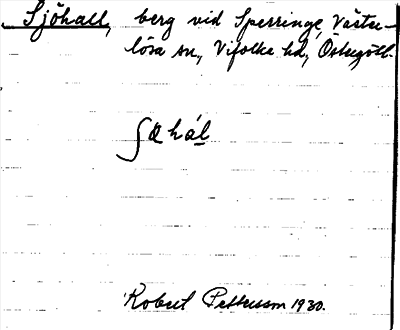 Sjöhall, berg vid Sperringe, Väster-
lösa sn, Vifolka hd, Östergötl.
ʃøhál
Robert Pettersson 1930.